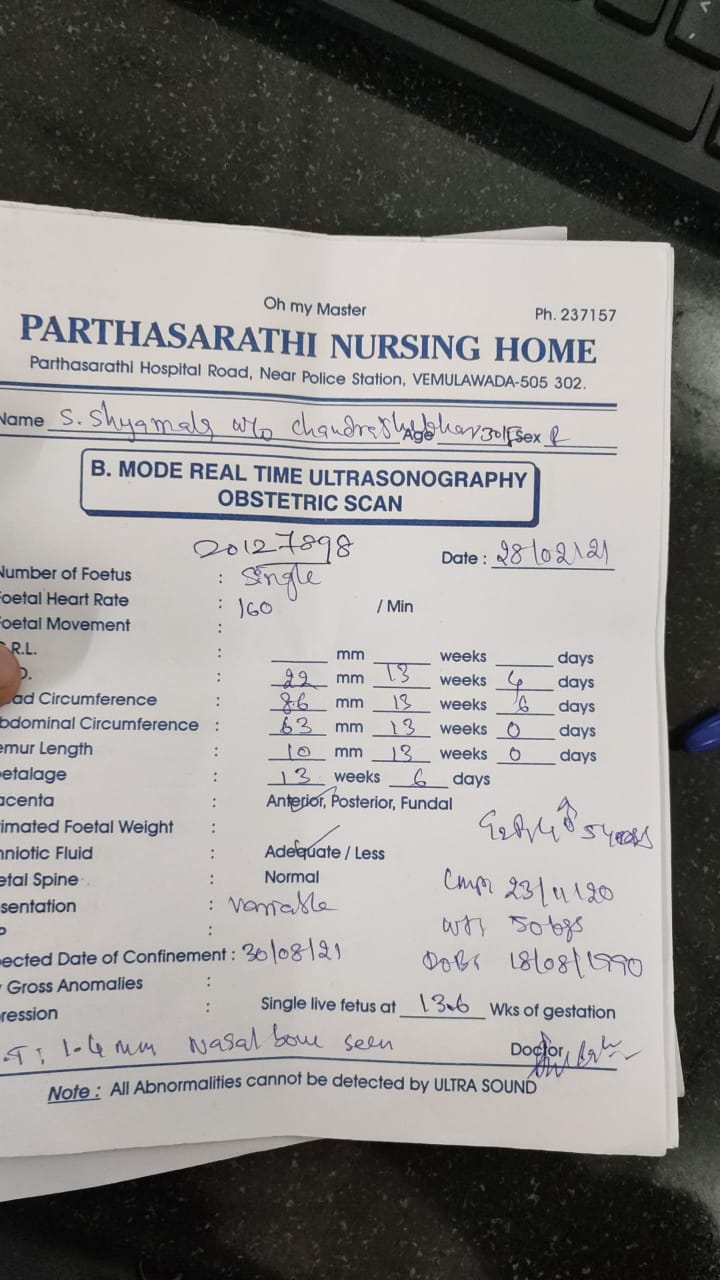 Oh my Master
Ph. 237157
PARTHASARATHI NURSING HOME
Parthasarathi Hospital Road, Near Police Station, VEMULAWADA-505 302.
Name S. Shyamala w/o Chandrashekhar Age 30 Sex F
B. MODE REAL TIME ULTRASONOGRAPHY
OBSTETRIC SCAN
20127898
Date : 28/02/21
Number of Foetus : Single
oetal Heart Rate : 160 / Min
oetal Movement :
R.L. : mm weeks days
D. : 22 mm 13 weeks 4 days
ad Circumference : 86 mm 13 weeks 6 days
bdominal Circumference : 63 mm 13 weeks 0 days
emur Length : 10 mm 13 weeks 0 days
etalage : 13 weeks 6 days
acenta : Anterior, Posterior, Fundal
imated Foetal Weight : 5 years
nniotic Fluid : Adequate / Less
etal Spine : Normal
23/11/20
sentation : Variable
50 kgs
:
ected Date of Confinement : 30/08/21
DOB: 18/08/1990
Gross Anomalies :
ression : Single live fetus at 13.6 Wks of gestation
.T: 1.4 mm Nasal bone seen
Doctor
Note : All Abnormalities cannot be detected by ULTRA SOUND